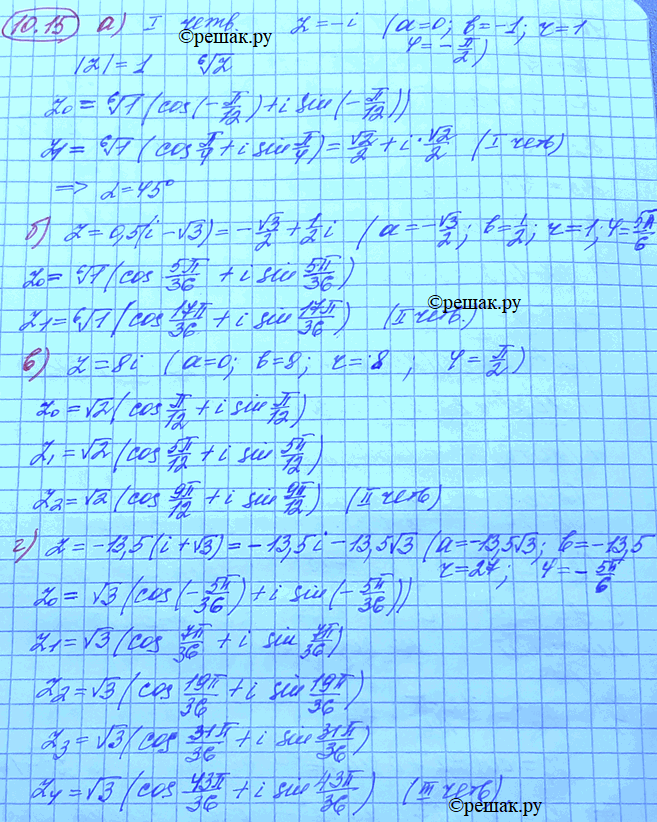 10.15 а) I четв. z = -i (a=0; b=-1; r=1
©решак.ру φ = -π/2)
|z| = 1 ⁶√z
z₀ = ⁶√1 (cos(-π/12) + i sin(-π/12))
z₁ = ⁶√1 (cos π/4 + i sin π/4) = √2/2 + i·√2/2 (I четв)
=> α = 45°
б) z = 0,5(i - √3) = -√3/2 + 1/2 i (a = -√3/2; b = 1/2; r = 1; φ = 5π/6
z₀ = ⁶√1 (cos 5π/36 + i sin 5π/36)
©решак.ру
z₁ = ⁶√1 (cos 17π/36 + i sin 17π/36) (II четв.)
в) z = 8i (a=0; b=8; r = 8; φ = π/2)
z₀ = √2 (cos π/12 + i sin π/12)
z₁ = √2 (cos 5π/12 + i sin 5π/12)
z₂ = √2 (cos 9π/12 + i sin 9π/12) (II четв)
г) z = -13,5(i + √3) = -13,5i - 13,5√3 (a = -13,5√3; b = -13,5
r = 27; φ = -5π/6
z₀ = √3 (cos(-5π/36) + i sin(-5π/36))
z₁ = √3 (cos 7π/36 + i sin 7π/36)
z₂ = √3 (cos 19π/36 + i sin 19π/36)
z₃ = √3 (cos 31π/36 + i sin 31π/36)
z₄ = √3 (cos 43π/36 + i sin 43π/36) (III четв)
©решак.ру